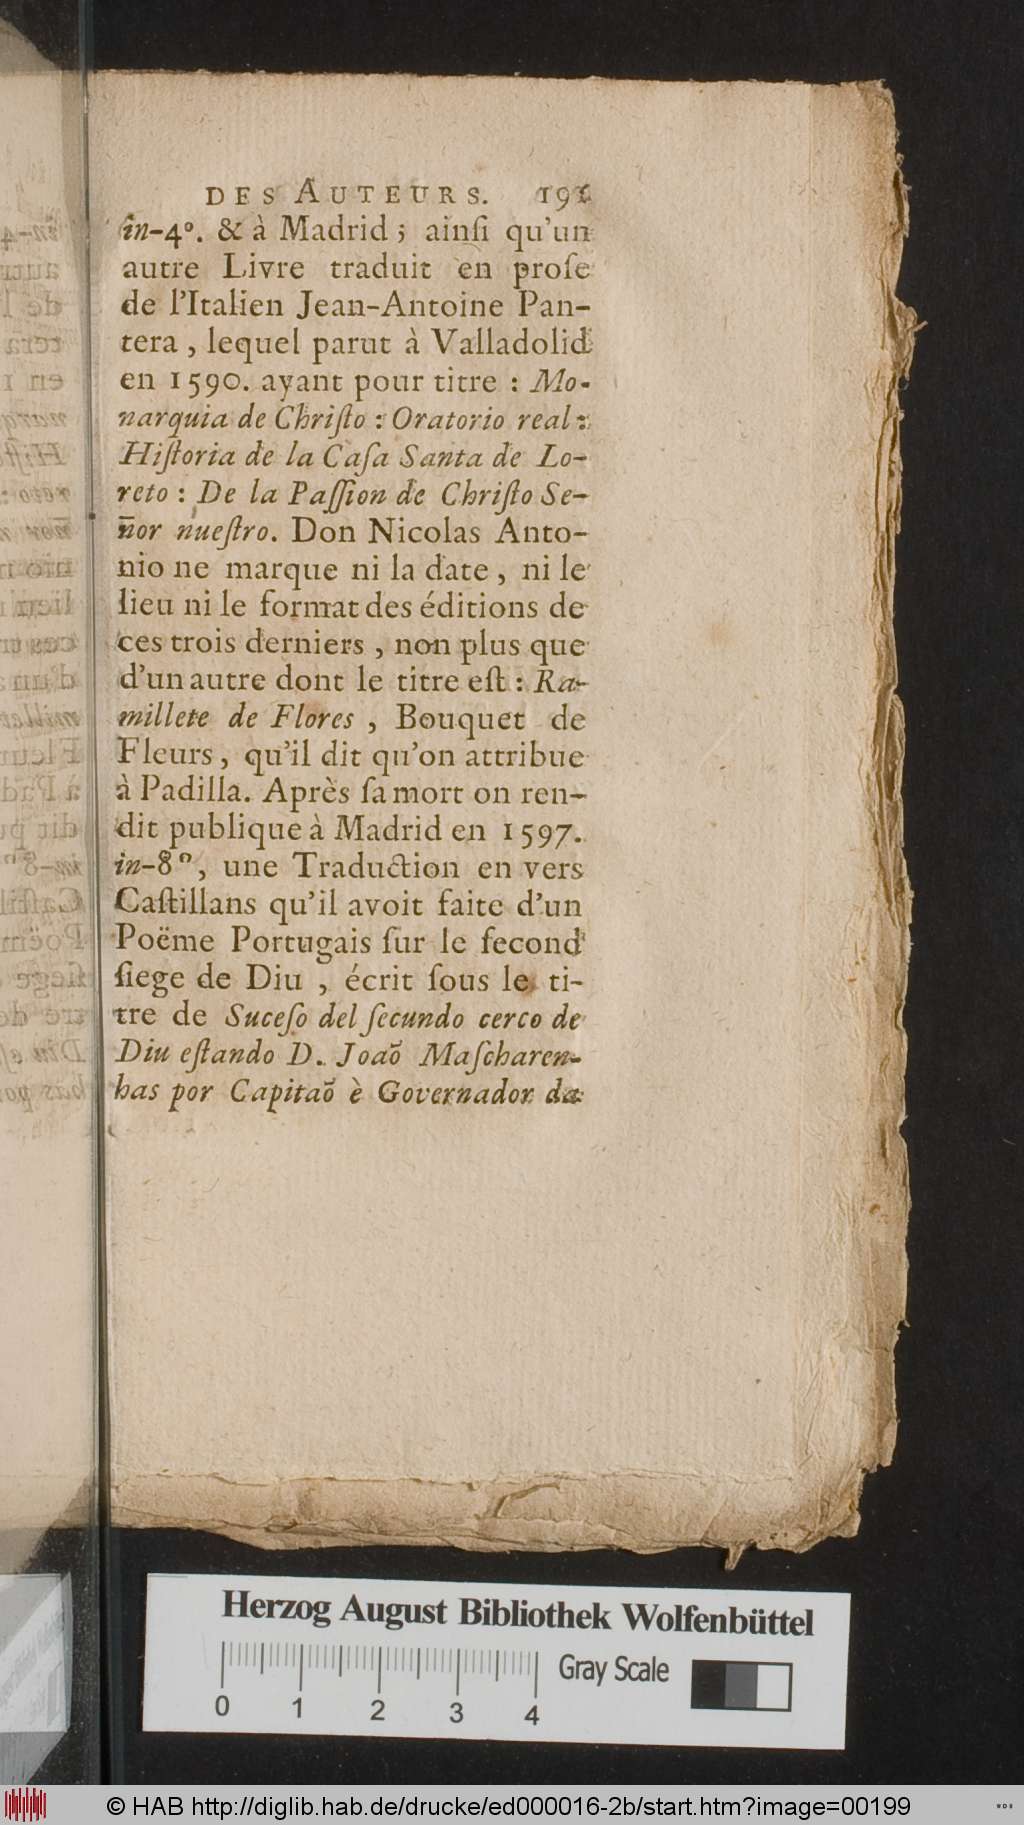 DES AUTEURS. 191
in-4°. & à Madrid ; ainſi qu'un
autre Livre traduit en proſe
de l'Italien Jean-Antoine Pan-
tera , lequel parut à Valladolid
en 1590. ayant pour titre : Mo-
narquia de Chriſto : Oratorio real :
Hiſtoria de la Caſa Santa de Lo-
reto : De la Paſſion de Chriſto Se-
ñor nueſtro. Don Nicolas Anto-
nio ne marque ni la date , ni le
lieu ni le format des éditions de
ces trois derniers , non plus que
d'un autre dont le titre eſt : Ra-
millete de Flores , Bouquet de
Fleurs , qu'il dit qu'on attribue
à Padilla. Après ſa mort on ren-
dit publique à Madrid en 1597.
in-8°, une Traduction en vers
Caſtillans qu'il avoit faite d'un
Poëme Portugais ſur le ſecond
ſiege de Diu , écrit ſous le ti-
tre de Suceſo del ſecundo cerco de
Diu eſtando D. Joaõ Maſcharen-
has por Capitaõ è Governador da
Herzog August Bibliothek Wolfenbüttel
Gray Scale
0 1 2 3 4
© HAB http://diglib.hab.de/drucke/ed000016-2b/start.htm?image=00199